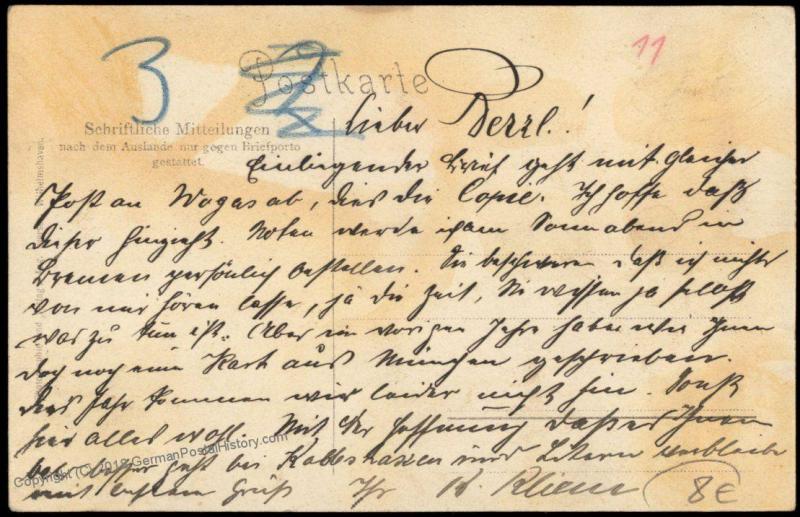 3
11
Postkarte
Schriftliche Mitteilungen
nach dem Auslande nur gegen Briefporto
gestattet.
Lieber Perzl!
Einliegender Brief geht mit gleicher
Post an Wogas ab, dies die Copie. Ich hoffe daß
dieser hinzieht. Noten werde ich am Sonnabend in
Bremen persönlich bestellen. Sie beschweren daß ich nichts
von mir hören lasse, ja die Zeit, Sie wissen ja selbst
was zu tun ist. Aber im vorigen Jahre haben wir Ihnen
doch noch eine Kart aus München geschrieben.
Dies Jahr kommen wir leider nicht hin. Sonst
hier alles wohl. Mit der Hoffnung daß es Ihnen
geht bei und verbleibe
mit Gruß Ihr
8€
Copyright (C) 2018 GermanPostalHistory.com